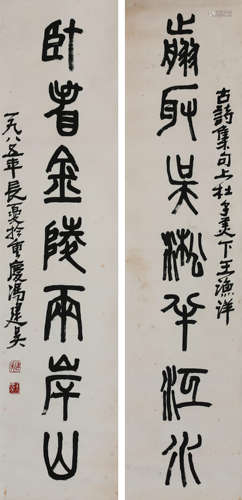 古詩集句上杜子美下王漁洋
翦取吳淞半江水
臥看金陵兩岸山
一九八五年長夏於重慶馮建吳